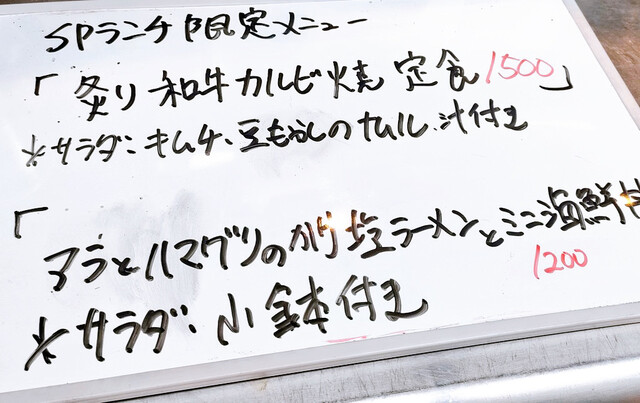 SPランチ限定メニュー
「炙り 和牛カルビ焼 定食 1500」
*サラダ、キムチ、豆もやしのナムル、汁付き
「
アラとハマグリの 塩ラーメンとミニ海鮮
1200
*サラダ、小鉢付き